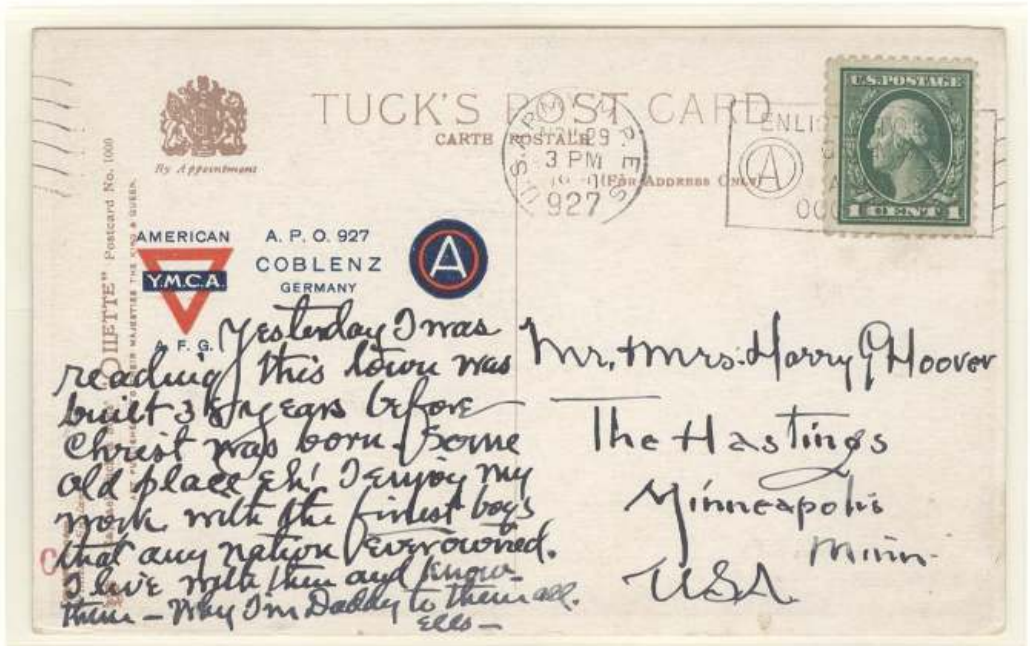 TUCK'S POST CARD
CARTE POSTALE
(FOR ADDRESS ONLY)
By Appointment
U.S. ARMY M.P.E.S.
3 PM
927
ENLI
A
U.S. POSTAGE
1 CENT 1
"OILETTE" Postcard No. 1000
THEIR MAJESTIES THE KING & QUEEN.
AMERICAN
Y.M.C.A.
A. F. G.
A. P. O. 927
COBLENZ
GERMANY
A
Yesterday I was
reading this town was
built 38 years before
Christ was born. Some
old place Eh! I enjoy my
work with the finest boys
that any nation ever owned.
I live with them and know
them – Why I'm Daddy to them all.
Mr. & Mrs. Harry G Hoover
The Hastings
Minneapolis
Minn.
USA